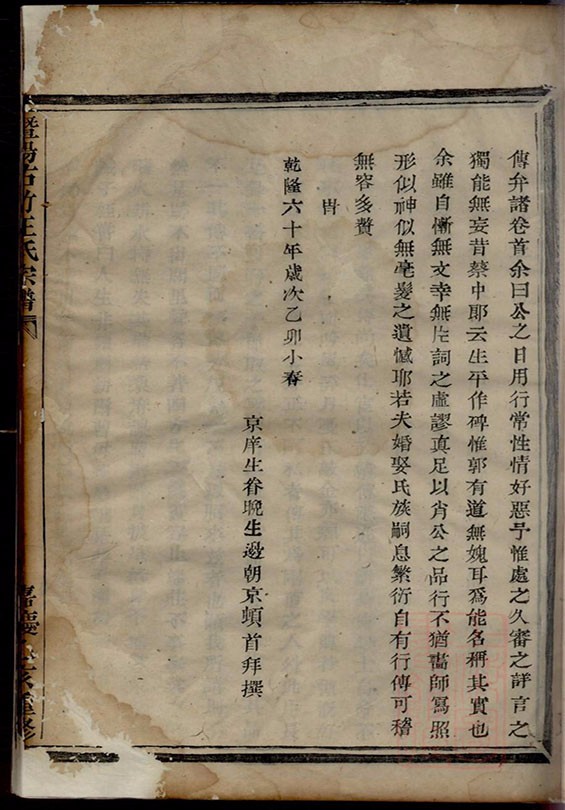 傳弁諸卷首余曰公之日用行常性情好惡予惟處之久審之詳言之
獨能無妄昔蔡中郎云生平作碑惟郭有道無媿耳爲能名稱其實也
余雖自慚無文幸無片詞之虛謬真足以肖公之品行不猶畵師寫照
形似神似無毫髮之遺憾耶若夫婚娶氏族嗣息繁衍自有行傳可稽
無容多贅
旹
乾隆六十年歲次乙卯小春
京庠生眷晚生邊朝京頓首拜撰
暨陽古竹王氏宗譜
嘉慶 重修